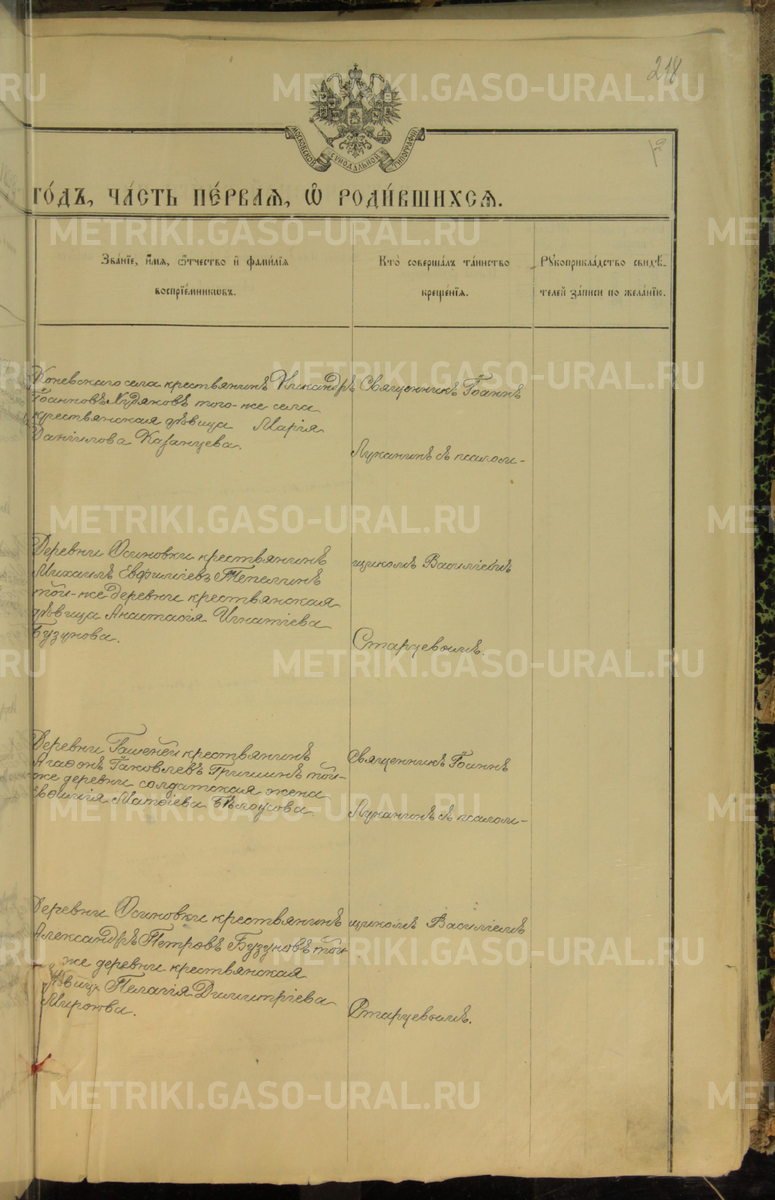 218
МОСКОВСКОЙ СѴНОДАЛЬНОЙ ТИПОГРАФІИ
ГО́ДЪ, ЧА́СТЬ ПЕ́РВАѦ, Ѽ РОДИ́ВШИХСѦ.
Зва́нїе, и́мѧ, ѻ҆́тчество и҆ фами́лїѧ
воспрїе́мникѡвъ.
Кто̀ соверша́лъ та́инство
креще́нїѧ.
Рꙋкоприкла́дство свидѣ́-
телей за́писи по жела́нїю.
Коневскаго села крестьянинъ
Іоанновъ Худяковъ того-же села
крестьянская дѣвица Марія
Даніилова Казанцева.
Священникъ Іоаннъ
Луканинъ съ псалом-
Деревни Осиновки крестьянинъ
Михаилъ Евфиміевъ Тепелинъ
той-же деревни крестьянская
дѣвица Анастасія Игнатіева
Бузунова.
щикомъ Василіемъ
Старцевымъ.
Деревни крестьянинъ
Агафонъ Іаковлевъ Гришинъ той-
же деревни солдатская жена
Матѳіева Бѣлоусова.
Священникъ Іоаннъ
Луканинъ съ псалом-
Деревни Осиновки крестьянинъ
Александръ Петровъ Бузуновъ той-
же деревни крестьянская
дѣвица Пелагія Димитріева
щикомъ Василіемъ
Старцевымъ.
METRIKI.GASO-URAL.RU